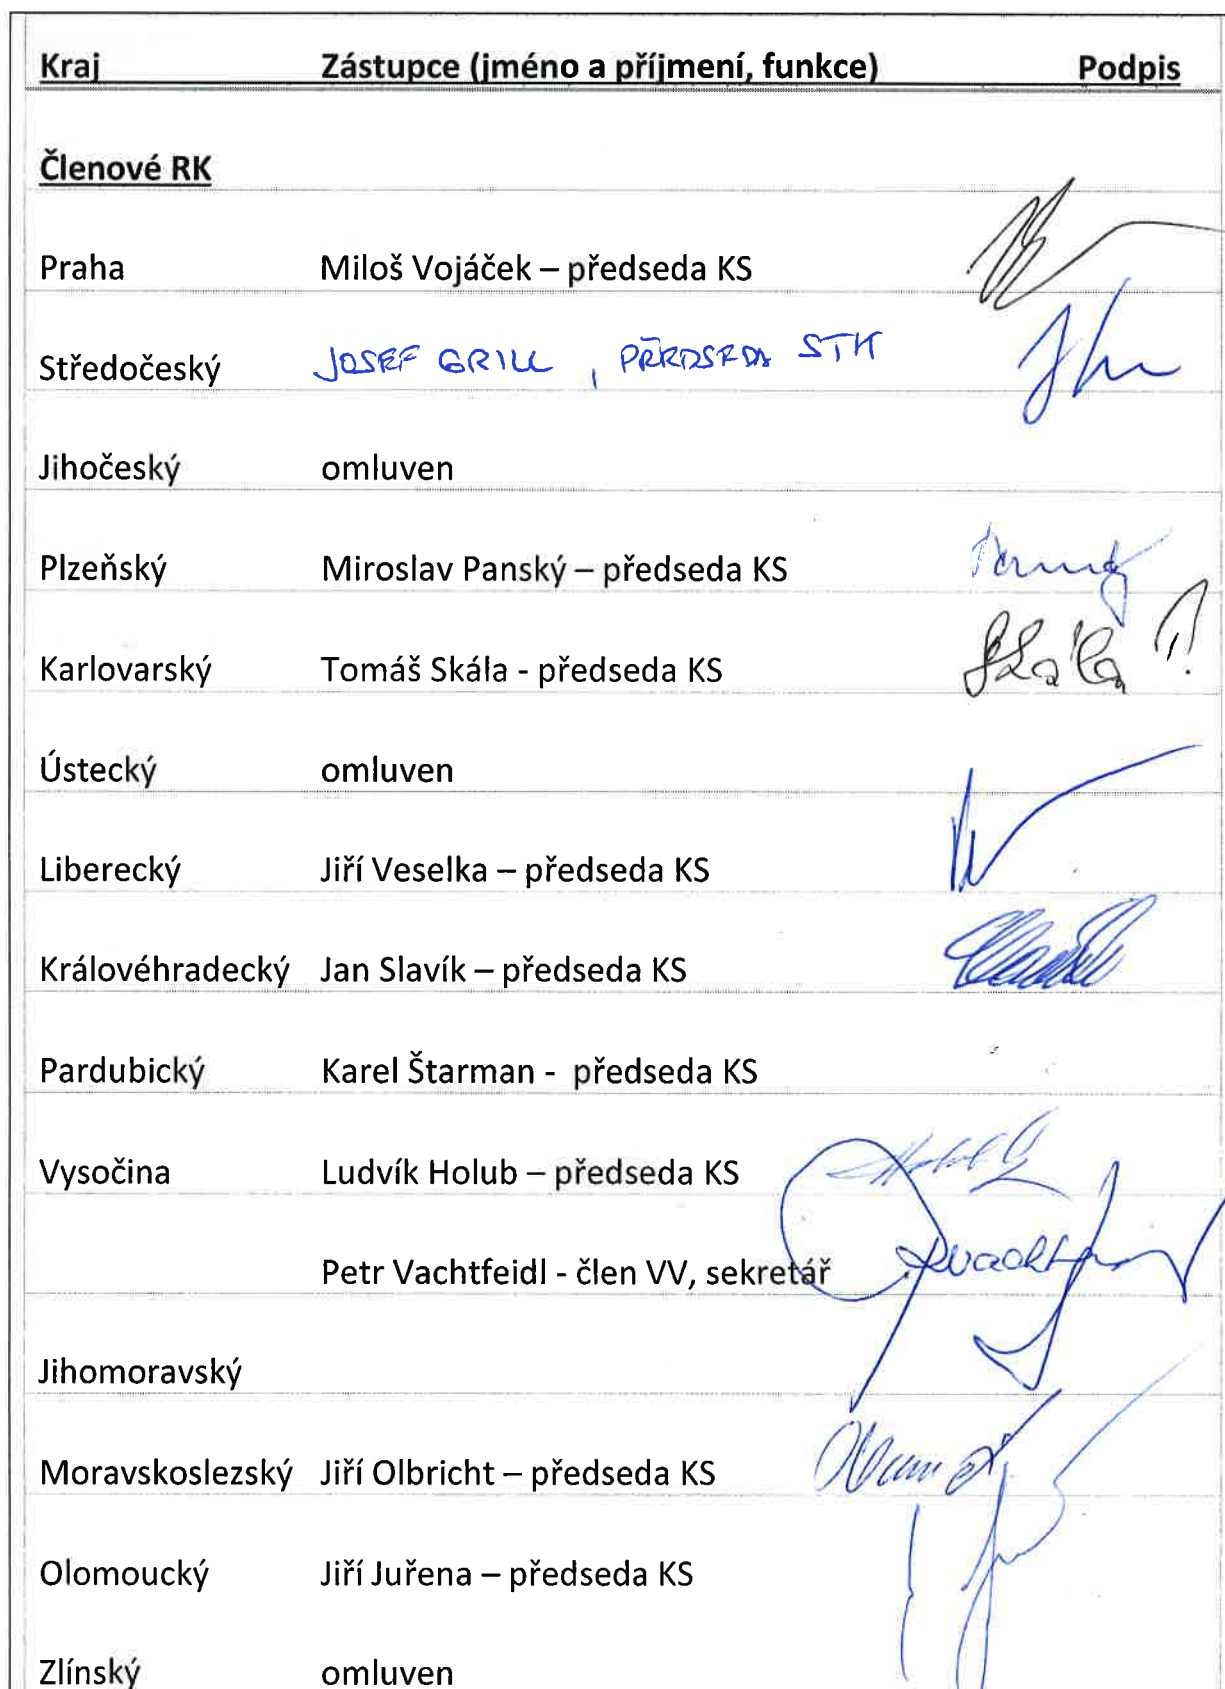 Kraj Zástupce (jméno a příjmení, funkce) Podpis
Členové RK
Praha Miloš Vojáček – předseda KS
Středočeský JOSEF GRILL, PŘEDSEDA STK
Jihočeský omluven
Plzeňský Miroslav Panský – předseda KS
Karlovarský Tomáš Skála - předseda KS Skála
Ústecký omluven
Liberecký Jiří Veselka – předseda KS
Královéhradecký Jan Slavík – předseda KS
Pardubický Karel Štarman - předseda KS
Vysočina Ludvík Holub – předseda KS
Petr Vachtfeidl - člen VV, sekretář
Jihomoravský
Moravskoslezský Jiří Olbricht – předseda KS
Olomoucký Jiří Juřena – předseda KS
Zlínský omluven